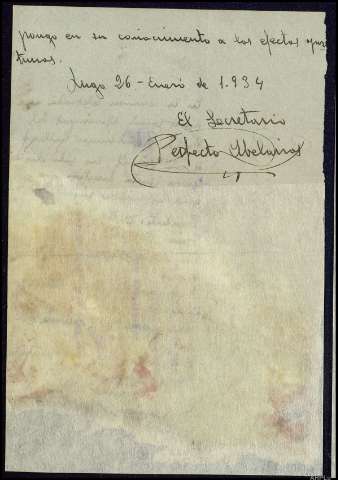 pongo en su conocimiento a los efectos opor
tunos.
Lugo 26 - Enero de 1.934
El Secretario
Perfecto Abelairas